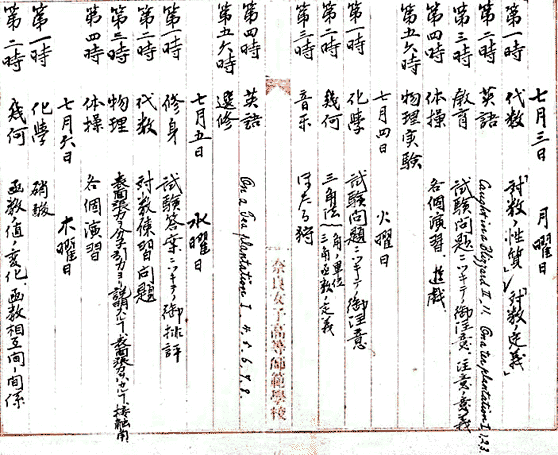 七月三日 月曜日
第一時 代数 「対数ノ性質」「対数ノ定義」
第二時 英語 Caught in a Blizzard II, 11. On a tea plantation I, 1.2.3.
第三時 教育 試験問題ニツキテノ御注意、注意ノ意義
第四時 体操 各個演習、遊戯
第五六時 物理実験
七月四日 火曜日
第一時 化學 試験問題ニツキテノ御注意
第二時 幾何 三角法 角ノ単位 三角函数ノ定義
第三時 音楽 ほたる狩
第四時 英語 On a tea plantation I. 4. 5. 6. 7. 8.
第五六時 選修
七月五日 水曜日
第一時 修身 試験答案ニツキテノ御批評
第二時 代数 対数練習問題
第三時 物理 表面張力ノ分子引力ヨリノ説明
第四時 体操 各個演習
七月六日 木曜日
第一時 化學 硝酸
第二時 幾何 函数値ノ変化、函数相互間ノ関係
奈良女子高等師範學校